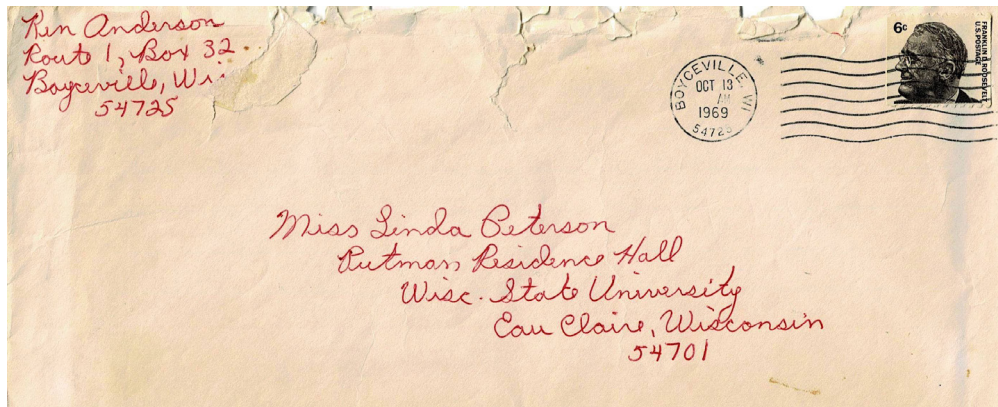 Ken Anderson
Route 1, Box 32
Boyceville, Wis
54725
BOYCEVILLE, WI
OCT 13
AM
1969
54725
6c
FRANKLIN D. ROOSEVELT
U.S. POSTAGE
Miss Linda Peterson
Putman Residence Hall
Wisc. State University
Eau Claire, Wisconsin
54701